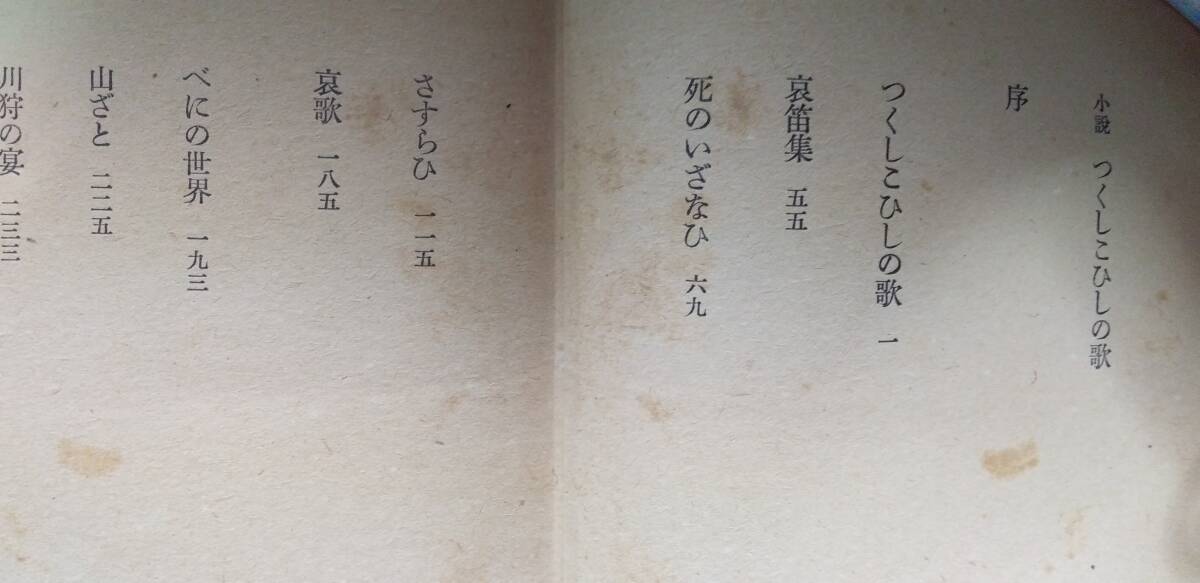 小説 つくしこひしの歌
序
つくしこひしの歌 一
哀笛集 五五
死のいざなひ 六九
さすらひ 一一五
哀歌 一八五
べにの世界 一九三
山ざと 二二五
川狩の宴 二三三